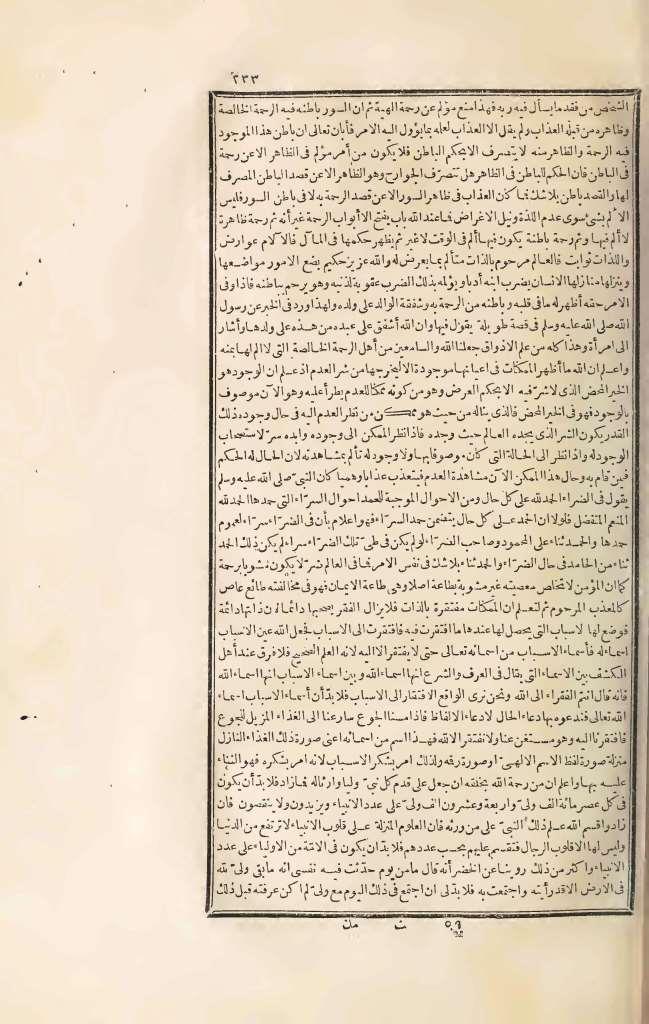 ٢٣٣
الشخص من فقد ما يسأل فيه ربه فهذا منع مؤلم عن رحمة الهية ثم ان السور باطنه فيه الرحمة الخالصة
وظاهره من قبله العذاب ولم يقل آلام العذاب لعلمه بما يؤول اليه الامر فأبان تعالى ان باطن هذا الموجود
فيه الرحمة والظاهر منه لا يتصرف الا بحكم الباطن فلا يكون من أمر مؤلم فى الظاهر الا عن رحمة
فى الباطن فان الحكم للباطن فى الظاهر هل تتصرّف الجوارح وهو الظاهر الا عن قصد الباطن المصرف
لها والقصد باطن بلا شك فما كان العذاب فى ظاهر السور الا عن قصد الرحمة به لا فى باطن السور فليس
الالم بشئ سوى عدم اللذة ونيل الاغراض فما عند الله باب يفتح الا أبواب الرحمة غير أنه ثم رحمة ظاهرة
لا ألم فيها وثم رحمة باطنة يكون فيها ألم فى الوقت لا غير ثم يظهر حكمها فى المآل فالآلام عوارض
واللذات ثوابت فالعالم مرحوم بالذات متألم بما يعرض له والله عزيز حكيم يضع الامور مواضعها
وينزلها منازلها الانسان يضرب ابنه أدبا ويؤلمه بذلك الضرب عقوبة لذنبه وهو يرحمه بباطنه فاذا وفى
الامر حقه أظهر له ما فى قلبه وباطنه من الرحمة به وشفقة الوالد على ولده ولهذا ورد فى الخبر عن رسول
الله صلى الله عليه وسلم فى قصة طويلة يقول فيها ان الله أشفق على عبده من هذه على ولدها وأشار
الى امرأة وهذا كله من علم الاذواق جعلنا الله والسامعين من أهل الرحمة الخالصة التى لا ألم لها بمنه
واعلم ان الله ما أظهر الممكنات فى اعيانها موجودة الا ليخرجها من شر العدم اذ علم ان الوجود هو
الخير المحض الذى لا شرّ فيه الا بحكم العرض وهو من كونه ممكنا للعدم نظر أعليه وهو الآن موصوف
بالوجود فهو فى الخير المحض فالذى يناله من حيث هو ممكن من نظر العدم اليه فى حال وجوده ذلك
القدر يكون الشر الذى يجده العالم حيث وجده فاذا نظر الممكن الى وجوده وابده سرّ لاستصحاب
الوجود له واذا نظر الى الحالة التى كان موصوفا بها ولا وجود له تألم بمشاهدته لان الحال له الحكم
فيمن قام به وحال هذا الممكن الآن مشاهدة العدم فيتعذب عذابا وهميا كان النبىّ صلى الله عليه وسلم
يقول فى الضراء الحمد لله على كل حال ومن الاحوال الموجبة للحمد احوال السرّاء التى حمدها الحمد لله
المنعم المتفضل فلولا ان الحمد على كل حال يتضمن حمد السرّاء فهو اعلام بأن فى الضرّاء سرّاء لعموم
حمدها والحمد ثناء على المحمود وصاحب الضرّاء لو لم يكن فى طىّ تلك الضرّاء سراء لم يكن ذلك الحمد
ثناء من الحامد فى حال الضرّاء والحمد ثناء بلا شك فى نفس الامر فما فى العالم شرّ لا يكون مشوبا برحمة
كما ان المؤمن لا تخلص معصيته غير مشوبة بطاعة اصلا وهى طاعة الايمان فهو فى مخالفته طائع عاص
كالمعذب المرحوم ثم لتعلم ان الممكنات مفتقرة بالذات فلا يزال الفقر يصحبها دائما لان ذاتها دائمة
فوضع لها الاسباب التى يحصل لها عندها ما افتقرت فيه فافتقرت الى الاسباب فجعل الله عين الاسباب
اسماء له فأسماء الاسباب من اسمائه تعالى حتى لا يفتقر الا اليه لانه العلم الصحيح فلا فرق عند أهل
الكشف بين الاسماء التى يقال فى العرف والشرع انها اسماء الله وبين اسماء الاسباب انها اسماء الله
فانه قال انتم الفقراء الى الله ونحن نرى الواقع الافتقار الى الاسباب فلا بدّ أن أسماء الاسباب اسماء
الله تعالى فندعوه بها دعاء الحال لا دعاء الالفاظ فاذا مسنا الجوع سارعنا الى الغذاء المزيل للجوع
فافتقرنا اليه وهو مستغن عنا ولا نفتقر الا لله فهذا اسم من اسمائه اعنى صورة ذلك الغذاء النازل
منزلة صورة لفظ الاسم الالهىّ او صورة رقه ولذلك امر بشكر الاسباب لانه امر بشكره فهو الثناء
عليه بها واعلم ان من رحمة الله بخلقه ان جعل على قدم كل نبىّ وليا وارثا له فما زاد فلا بدّ أن يكون
فى كل عصر مائة الف ولىّ واربعة وعشرون الف ولىّ على عدد الانبياء ويزيدون ولا ينقصون فان
زادوا قسم الله علم ذلك النبىّ على من ورثه فان العلوم المنزلة على قلوب الانبياء لا ترتفع من الدنيا
وليس لها الا قلوب الرجال فتقسم عليهم بحسب عددهم فلا بدّ ان يكون فى الامّة من الاولياء على عدد
الانبياء واكثر من ذلك روينا عن الخضر أنه قال ما من يوم حدّثت فيه نفسى انه ما بقى ولىّ لله
فى الارض الا قد رأيته واجتمعت به فلا بدّ لى ان اجتمع فى ذلك اليوم مع ولىّ لم اكن عرفته قبل ذلك
مك ت